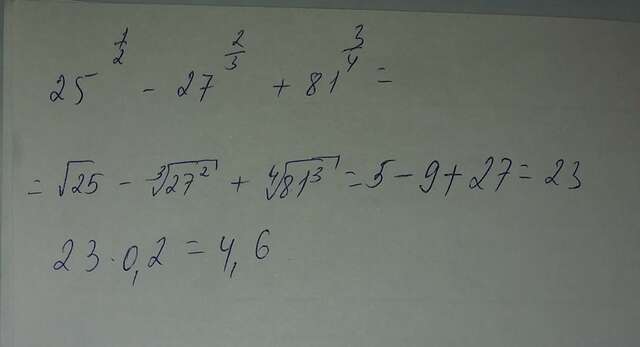 25^(1/2) - 27^(2/3) + 81^(3/4) =
= √25 - ∛27² + ∜81³ = 5 - 9 + 27 = 23
23 · 0,2 = 4,6